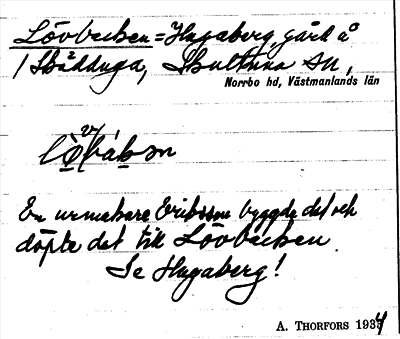 Lövbacken = Hagaberg, gård å
1 Skådduga, Skultuna sn,
Norrbo hd, Västmanlands län
En urmakare Eriksson byggde det och
döpte det till Lövbacken.
Se Hagaberg!
A. THORFORS 1934